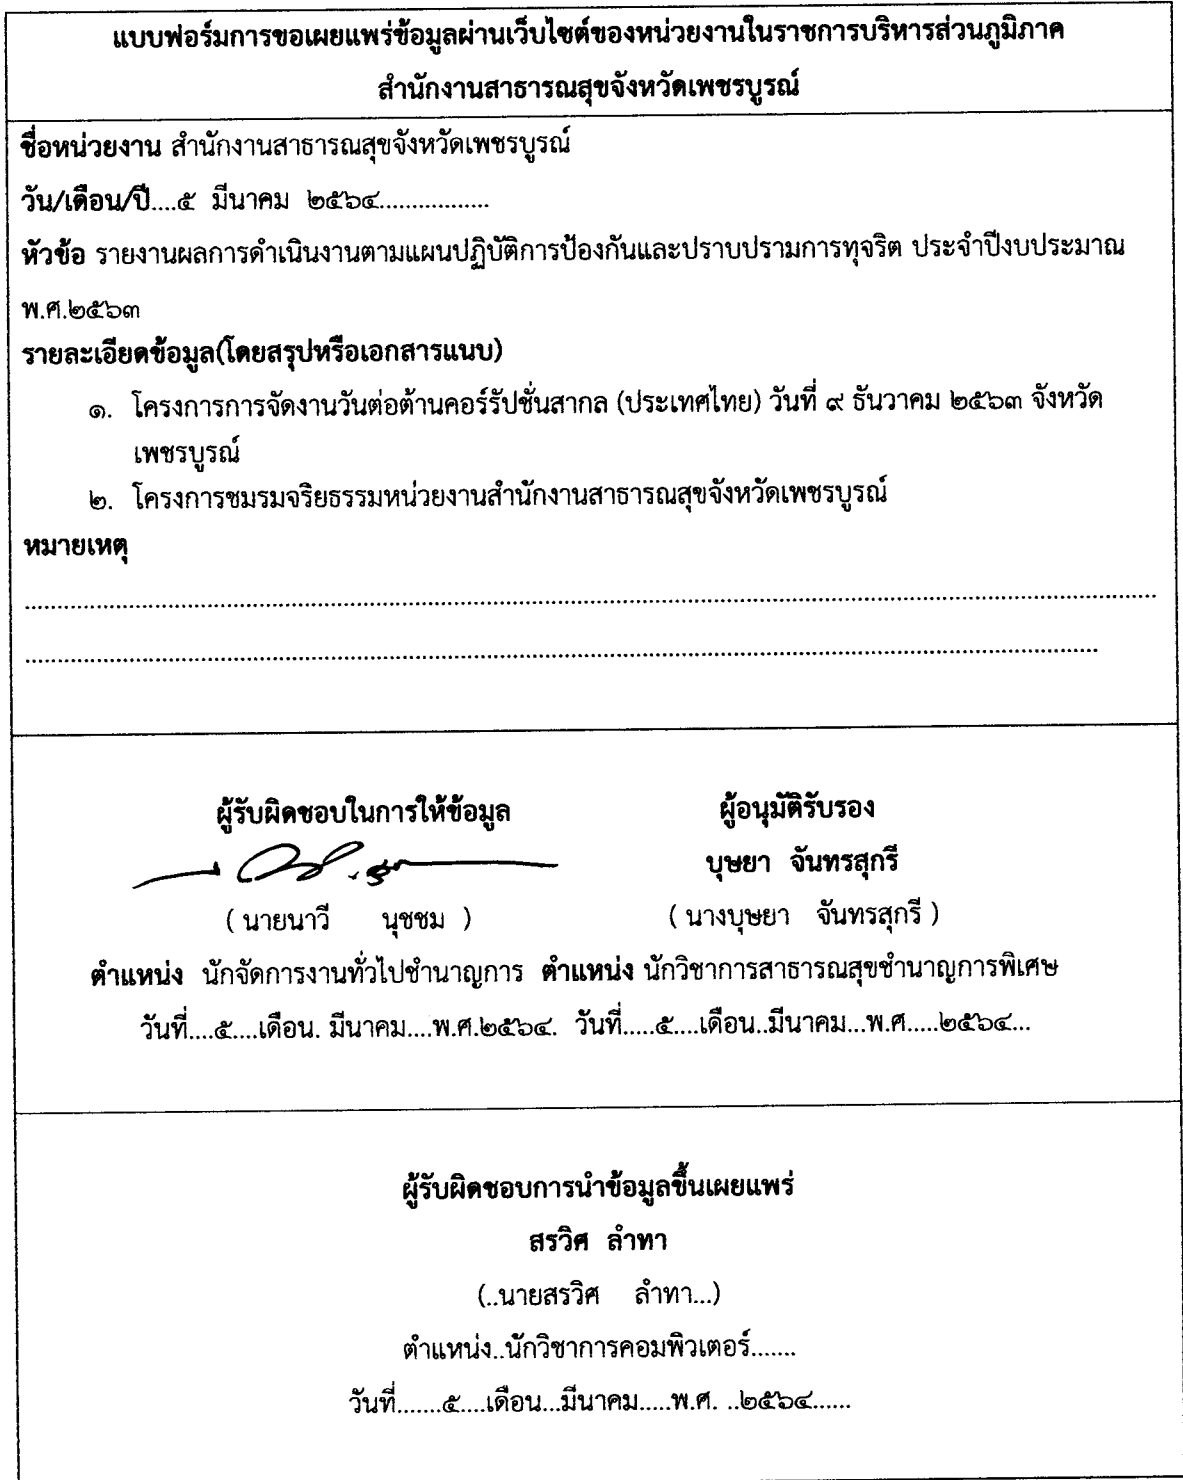 แบบฟอร์มการขอเผยแพร่ข้อมูลผ่านเว็บไซต์ของหน่วยงานในราชการบริหารส่วนภูมิภาค
สำนักงานสาธารณสุขจังหวัดเพชรบูรณ์
ชื่อหน่วยงาน สำนักงานสาธารณสุขจังหวัดเพชรบูรณ์
วัน/เดือน/ปี....๕ มีนาคม ๒๕๖๔.................
หัวข้อ รายงานผลการดำเนินงานตามแผนปฏิบัติการป้องกันและปราบปรามการทุจริต ประจำปีงบประมาณ
พ.ศ.๒๕๖๓
รายละเอียดข้อมูล(โดยสรุปหรือเอกสารแนบ)
๑. โครงการการจัดงานวันต่อต้านคอร์รัปชั่นสากล (ประเทศไทย) วันที่ ๙ ธันวาคม ๒๕๖๓ จังหวัด
เพชรบูรณ์
๒. โครงการชมรมจริยธรรมหน่วยงานสำนักงานสาธารณสุขจังหวัดเพชรบูรณ์
หมายเหตุ
ผู้รับผิดชอบในการให้ข้อมูล ผู้อนุมัติรับรอง
บุษยา จันทรสุกรี
( นายนาวี นุชชม ) ( นางบุษยา จันทรสุกรี )
ตำแหน่ง นักจัดการงานทั่วไปชำนาญการ ตำแหน่ง นักวิชาการสาธารณสุขชำนาญการพิเศษ
วันที่....๕....เดือน. มีนาคม....พ.ศ.๒๕๖๔. วันที่.....๕....เดือน..มีนาคม...พ.ศ.....๒๕๖๔...
ผู้รับผิดชอบการนำข้อมูลขึ้นเผยแพร่
สรวิศ ลำทา
(..นายสรวิศ ลำทา...)
ตำแหน่ง..นักวิชาการคอมพิวเตอร์.......
วันที่.......๕....เดือน...มีนาคม.....พ.ศ. ..๒๕๖๔......